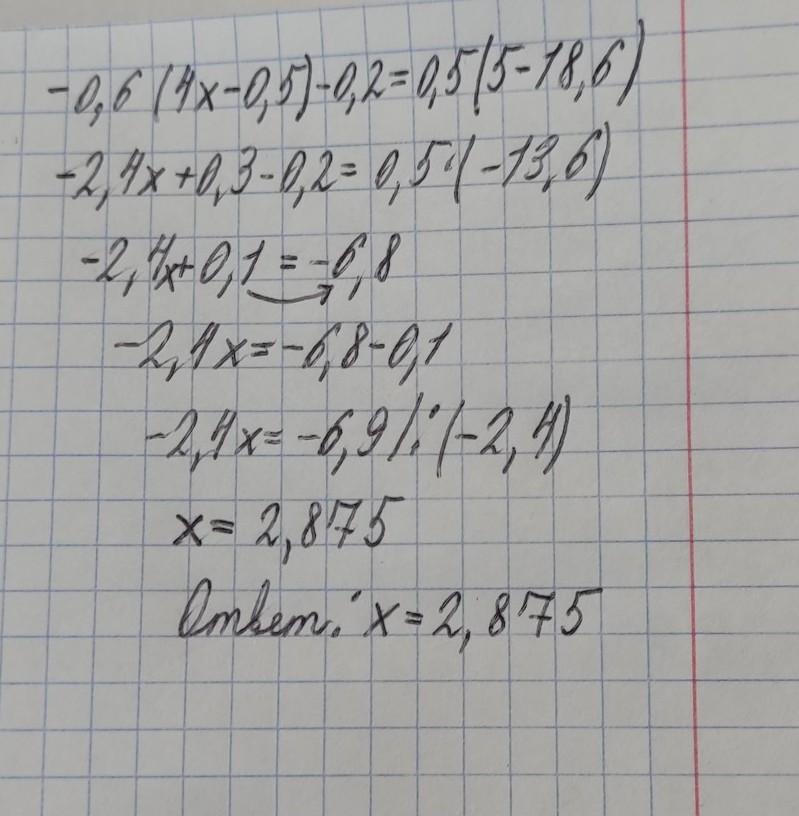 -0,6(4x-0,5)-0,2=0,5(5-18,6)
-2,4x+0,3-0,2=0,5·(-13,6)
-2,4x+0,1=-6,8
-2,4x=-6,8-0,1
-2,4x=-6,9/:(-2,4)
x=2,875
Ответ: x=2,875